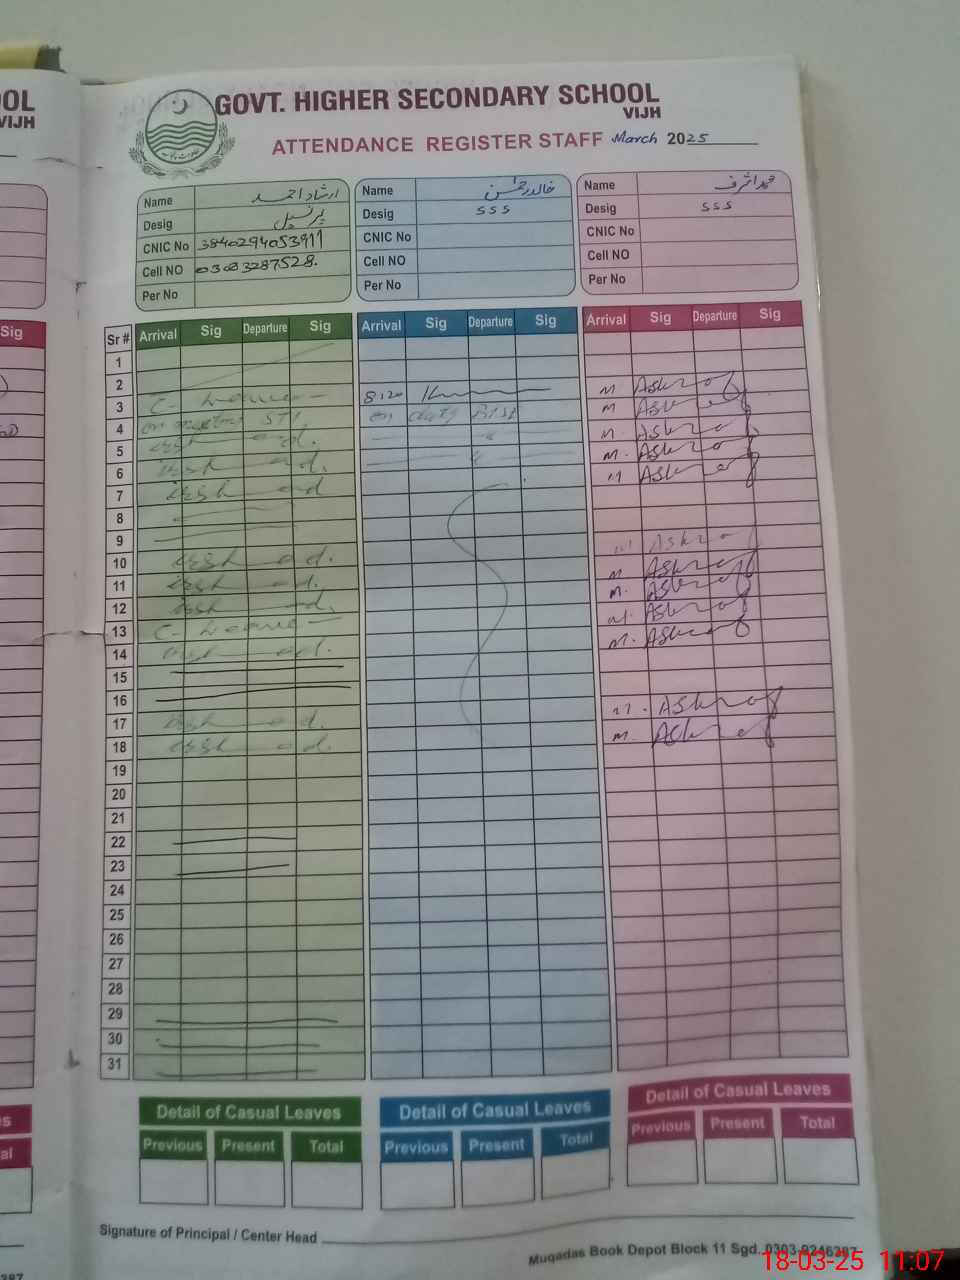 OOL
VIJH
GOVT. HIGHER SECONDARY SCHOOL
VIJH
ATTENDANCE REGISTER STAFF March 2025
Name ارشاد احمد
Desig پرنسپل
CNIC No 3840294053911
Cell NO 03083287528.
Per No
Name خالد رحمٰن
Desig SSS
CNIC No
Cell NO
Per No
Name محمد اشرف
Desig SSS
CNIC No
Cell NO
Per No
Sig
Sr # Arrival Sig Departure Sig Arrival Sig Departure Sig Arrival Sig Departure Sig
1
2
3 C- Leave 8:20 M Ashraf
4 on meeting on duty M Ashraf
5 irshad. M. Ashraf
6 irshad. M. Ashraf
7 irshad M Ashraf
8
9
10 irshad. M Ashraf
11 irshad. M Ashraf
12 irshad. M. Ashraf
13 C- Leave M. Ashraf
14 irshad. M. Ashraf
15
16
17 irshad. M. Ashraf
18 irshad. M. Ashraf
19
20
21
22
23
24
25
26
27
28
29
30
31
Detail of Casual Leaves
Previous Present Total
Detail of Casual Leaves
Previous Present Total
Detail of Casual Leaves
Previous Present Total
Signature of Principal / Center Head
Muqadas Book Depot Block 11 Sgd.
18-03-25 11:07